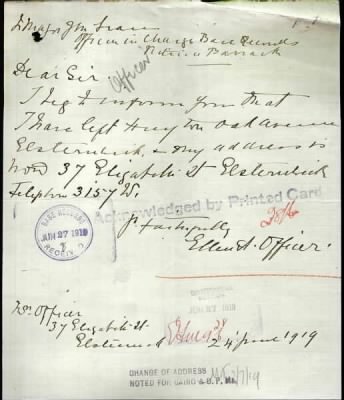 To Major J M Lean
Officer in Charge Base Records
Victoria Barracks
Dear Sir
Officer
I beg to inform you that
I have left Huyton Oak Avenue
Elsternwick, & my address is
now 37 Elizabeth St Elsternwick
Telephone 3157
Acknowledged by Printed Card
yrs faithfully
Ellen A. Officer.
BASE RECORDS
JUN 27 1919
RECEIVED
JUN 1919
Mrs Officer
37 Elizabeth St.
Elsternwick
24 June 1919
CHANGE OF ADDRESS
NOTED FOR CARD & B.P.